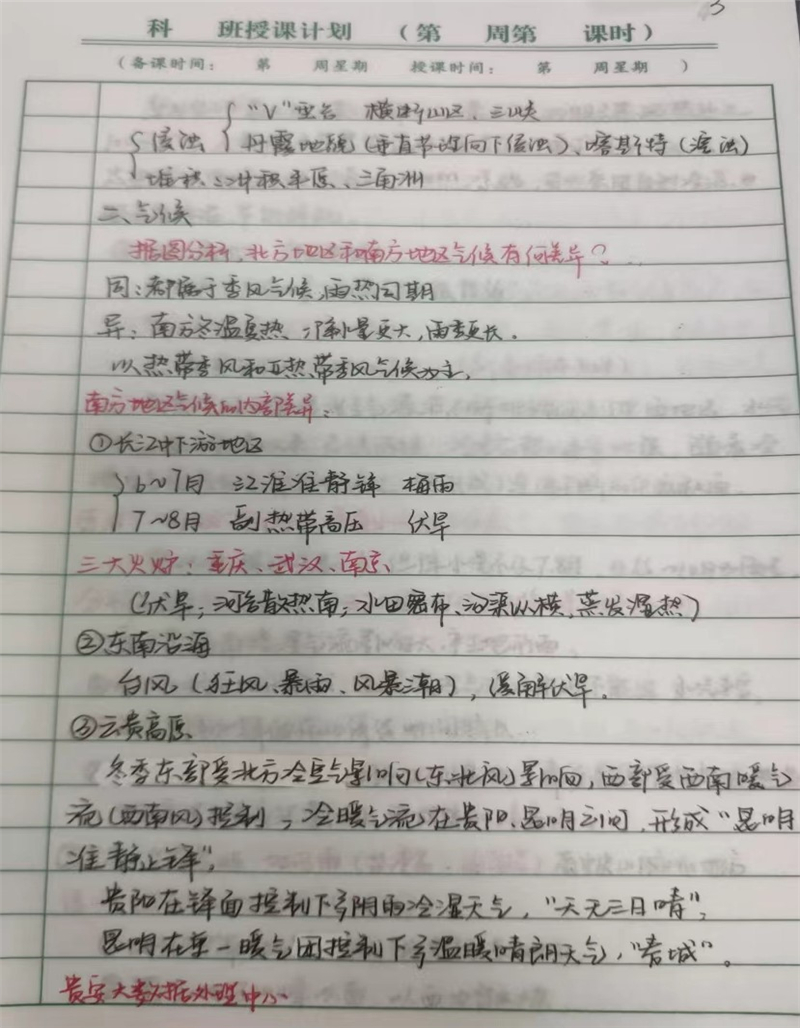 3
科 班授课计划 (第 周第 课时)
(备课时间: 第 周星期 授课时间: 第 周星期 )
"V"型谷 横断山区、三峡
侵蚀 丹霞地貌(垂直节理向下侵蚀)、喀斯特(溶蚀)
堆积:冲积平原、三角洲
二、气候
据图分析,北方地区和南方地区气候有何差异?
同:都属于季风气候,雨热同期
异:南方冬温夏热,降水量更大,雨季更长。
以热带季风和亚热带季风气候为主,
南方地区气候的内部差异:
①长江中下游地区
6~7月 江淮准静锋 梅雨
7~8月 副热带高压 伏旱
三大火炉:重庆、武汉、南京
(伏旱;河谷散热南;水田遍布、河渠纵横,蒸发湿热)
②东南沿海
台风(狂风、暴雨、风暴潮),缓解伏旱。
③云贵高原
冬季东部受北方冷空气影响(东北风)影响,西部受西南暖气
流(西南风)控制,冷暖气流在贵阳、昆明之间,形成"昆明
准静止锋",
贵阳在锋面控制下多阴雨冷湿天气,"天无三日晴";
昆明在单一暖气团控制下多温暖晴朗天气,"春城"。
贵安大数据处理中心